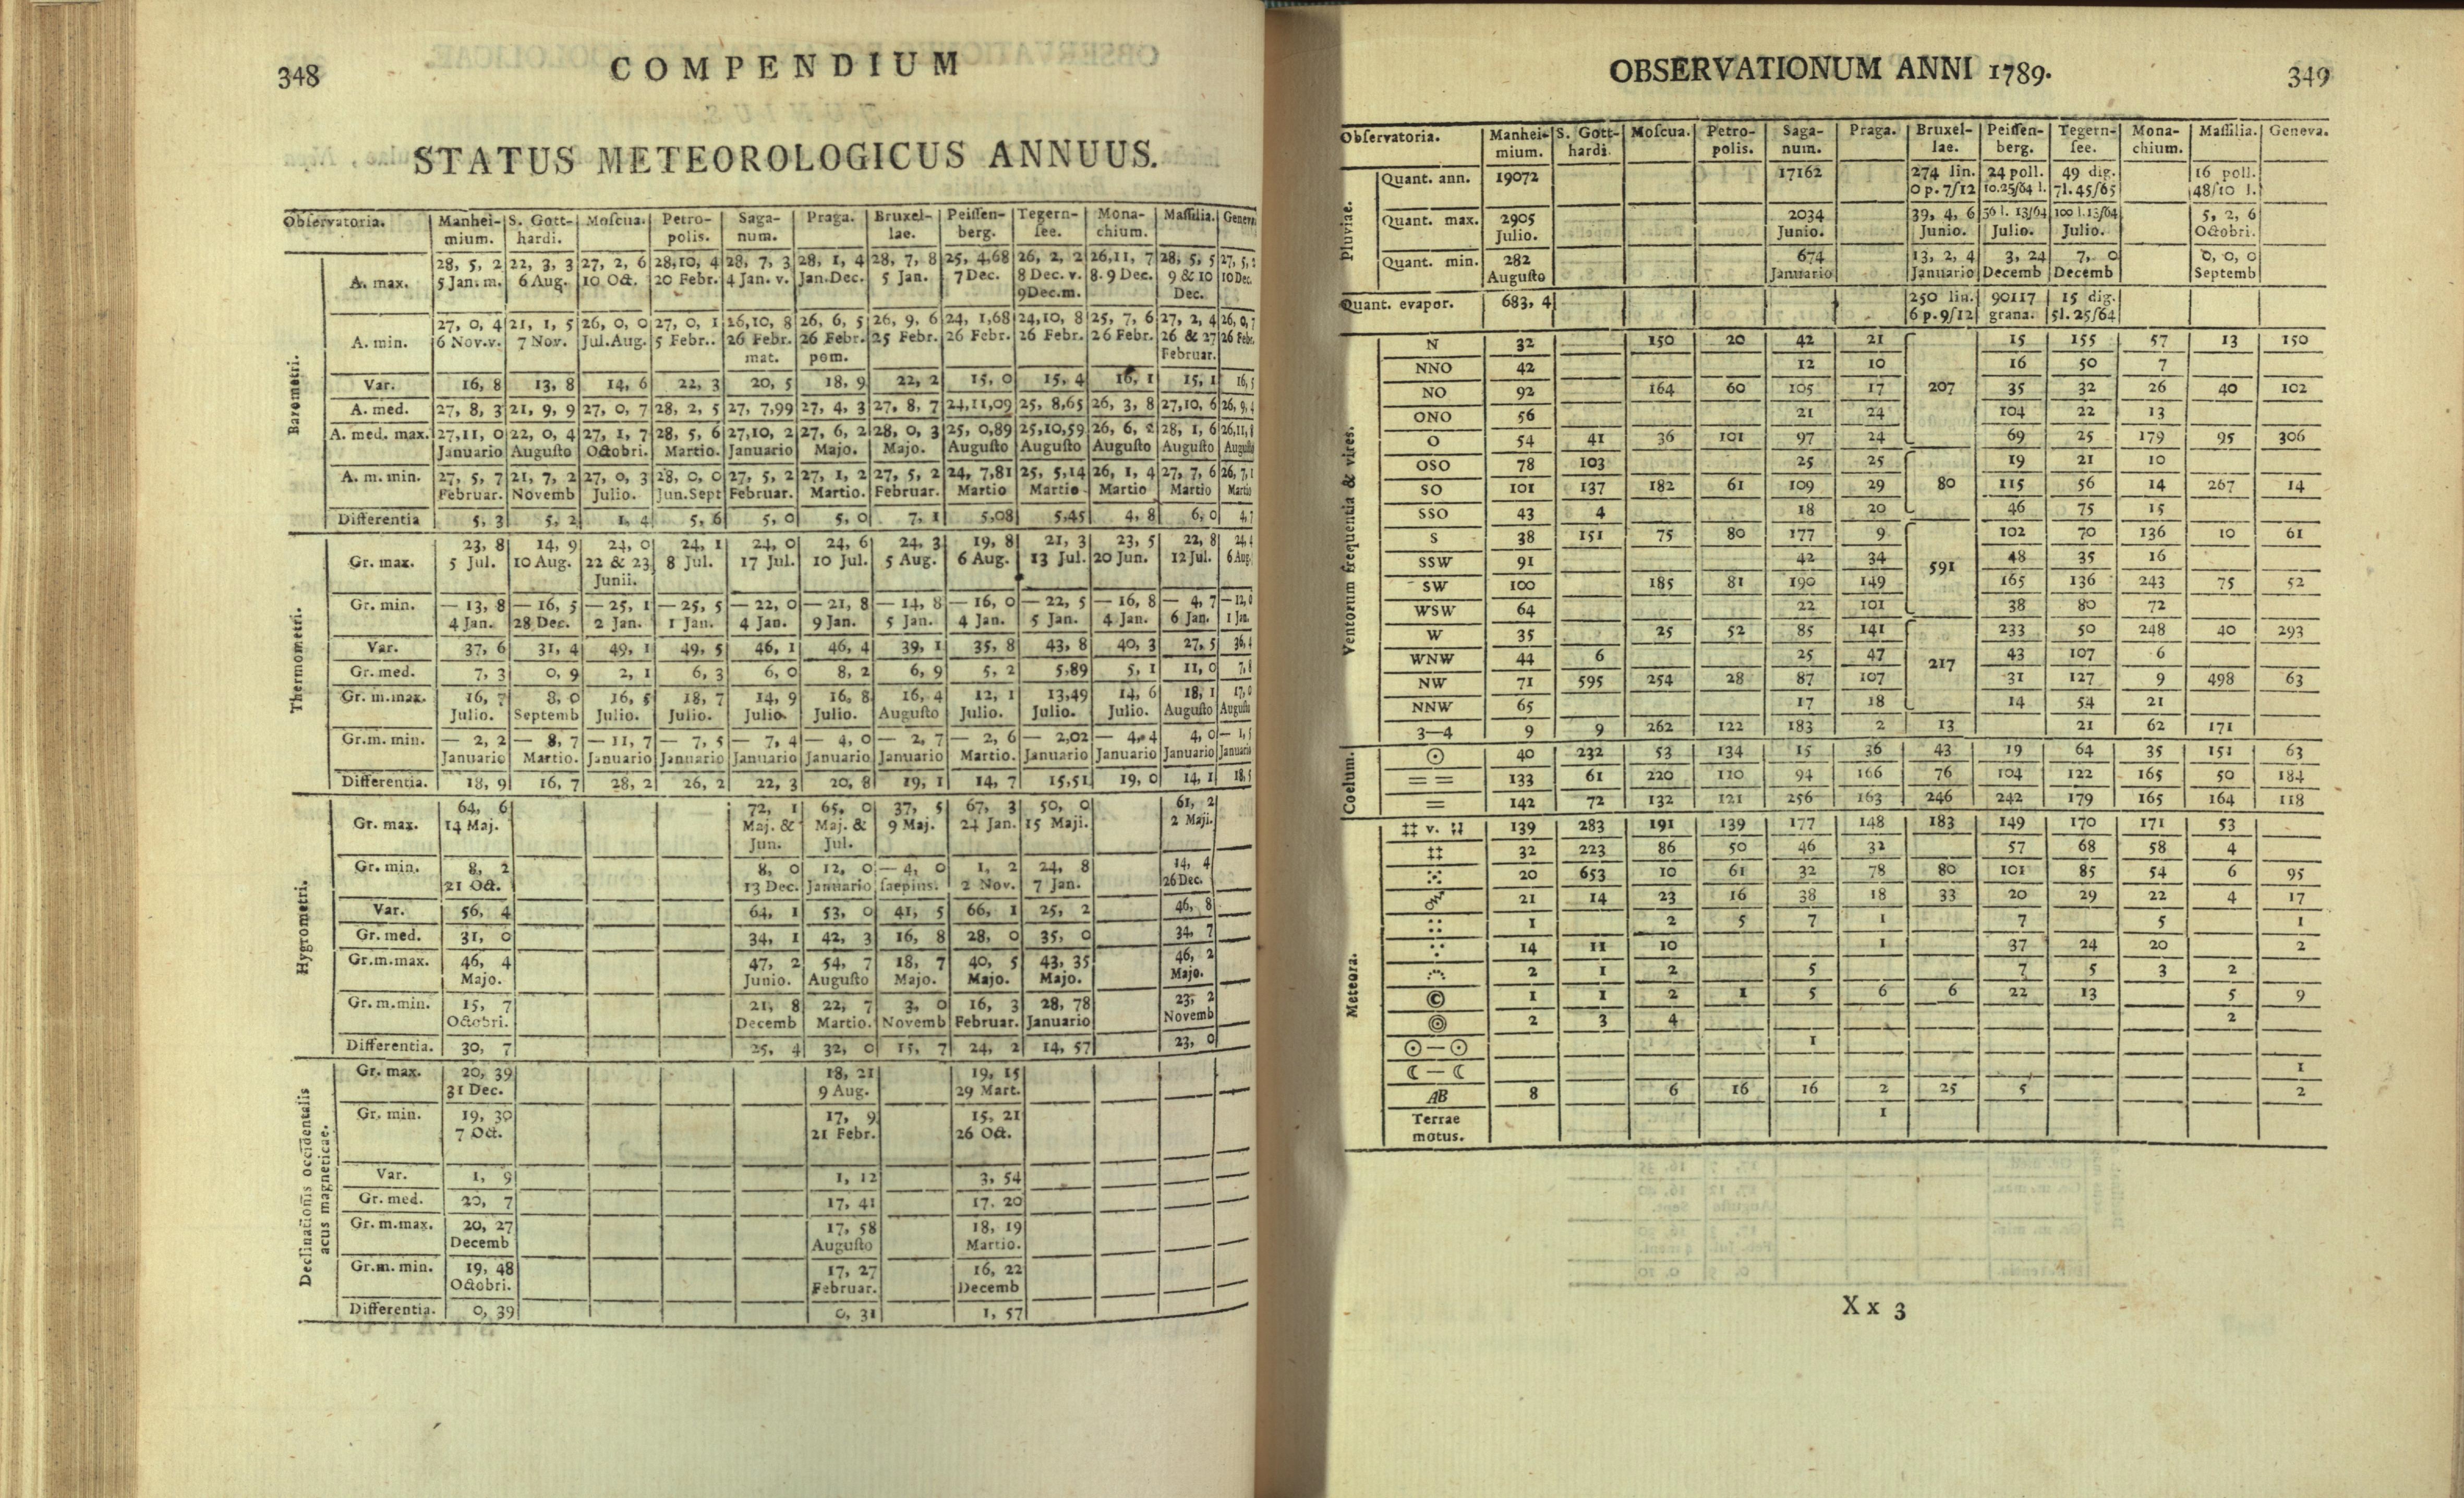 348
COMPENDIUM
STATUS METEOROLOGICUS ANNUUS.
Obſervatoria. Manhei- S. Gott- Moſcua. Petro- Saga- Praga. Bruxel- Peiſſen- Tegern- Mona- Maſſilia. Geneva
mium. hardi. polis. num. lae. berg. ſee. chium.
Barometri.
A. max. 28, 5, 2 22, 3, 3 27, 2, 6 28,10, 4 28, 7, 3 28, 1, 4 28, 7, 8 25, 4,68 26, 2, 2 26,11, 7 28, 5, 5 27, 5,
5 Jan. m. 6 Aug. 10 Oct. 20 Febr. 4 Jan. v. Jan.Dec. 5 Jan. 7 Dec. 8 Dec. v. 8. 9 Dec. 9 & 10 10 Dec.
9Dec.m. Dec.
A. min. 27, 0, 4 21, 1, 5 26, 0, 0 27, 0, 1 26,10, 8 26, 6, 5 26, 9, 6 24, 1,68 24,10, 8 25, 7, 6 27, 2, 4 26, 0, 7
6 Nov.v. 7 Nov. Jul.Aug. 5 Febr.. 26 Febr. 26 Febr. 25 Febr. 26 Febr. 26 Febr. 26 Febr. 26 & 27 26 Febr.
mat. pom. Februar.
Var. 16, 8 13, 8 14, 6 22, 3 20, 5 18, 9 22, 2 15, 0 15, 4 16, 1 15, 1 16, 5
A. med. 27, 8, 3 21, 9, 9 27, 0, 7 28, 2, 5 27, 7,99 27, 4, 3 27, 8, 7 24,11,09 25, 8,65 26, 3, 8 27,10, 6 26, 9, 4
A. med. max. 27,11, 0 22, 0, 4 27, 1, 7 28, 5, 6 27,10, 2 27, 6, 2 28, 0, 3 25, 0,89 25,10,59 26, 6, 2 28, 1, 6 26,11, 8
Januario Auguſto Octobri. Martio. Januario Majo. Majo. Auguſto Auguſto Auguſto Auguſto Auguſto
A. m. min. 27, 5, 7 21, 7, 2 27, 0, 3 28, 0, 0 27, 5, 2 27, 1, 2 27, 5, 2 24, 7,81 25, 5,14 26, 1, 4 27, 7, 6 26, 7, 1
Februar. Novemb Julio. Jun.Sept Februar. Martio. Februar. Martio Martio Martio Martio Martio
Differentia 5, 3 5, 2 1, 4 5, 6 5, 0 5, 0 7, 1 5,08 5,45 4, 8 6, 0 4, 7
Thermometri.
Gr. max. 23, 8 14, 9 24, 0 24, 1 24, 0 24, 6 24, 3 19, 8 21, 3 23, 5 22, 8 24, 4
5 Jul. 10 Aug. 22 & 23 8 Jul. 17 Jul. 10 Jul. 5 Aug. 6 Aug. 13 Jul. 20 Jun. 12 Jul. 6 Aug.
Junii.
Gr. min. — 13, 8 — 16, 5 — 25, 1 — 25, 5 — 22, 0 — 21, 8 — 14, 8 — 16, 0 — 22, 5 — 16, 8 — 4, 7 — 12, 0
4 Jan. 28 Dec. 2 Jan. 1 Jan. 4 Jan. 9 Jan. 5 Jan. 4 Jan. 5 Jan. 4 Jan. 6 Jan. 1 Jan.
Var. 37, 6 31, 4 49, 1 49, 5 46, 1 46, 4 39, 1 35, 8 43, 8 40, 3 27, 5 36, 4
Gr. med. 7, 3 0, 9 2, 1 6, 3 6, 0 8, 2 6, 9 5, 2 5,89 5, 1 11, 0 7, 8
Gr. m.max. 16, 7 8, 0 16, 5 18, 7 14, 9 16, 8 16, 4 12, 1 13,49 14, 6 18, 1 17, 0
Julio. Septemb Julio. Julio. Julio. Julio. Auguſto Julio. Julio. Julio. Auguſto Auguſto
Gr.m. min. — 2, 2 — 8, 7 — 11, 7 — 7, 5 — 7, 4 — 4, 0 — 2, 7 — 2, 6 — 2,02 — 4, 4 4, 0 — 1, 5
Januario Martio. Januario Januario Januario Januario Januario Martio. Januario Januario Januario Januario
Differentia. 18, 9 16, 7 28, 2 26, 2 22, 3 20, 8 19, 1 14, 7 15,51 19, 0 14, 1 18, 5
Hygrometri.
Gr. max. 64, 6 72, 1 65, 0 37, 5 67, 3 50, 0 61, 2
14 Maj. Maj. & Maj. & 9 Maj. 24 Jan. 15 Maji. 2 Maji.
Jun. Jul.
Gr. min. 8, 2 8, 0 12, 0 — 4, 0 1, 2 24, 8 14, 4
21 Oct. 13 Dec. Januario ſaepius. 2 Nov. 7 Jan. 26 Dec.
Var. 56, 4 64, 1 53, 0 41, 5 66, 1 25, 2 46, 8
Gr. med. 31, 0 34, 1 42, 3 16, 8 28, 0 35, 0 34, 7
Gr.m.max. 46, 4 47, 2 54, 7 18, 7 40, 5 43, 35 46, 2
Majo. Junio. Auguſto Majo. Majo. Majo. Majo.
Gr. m.min. 15, 7 21, 8 22, 7 3, 0 16, 3 28, 78 23, 2
Octobri. Decemb Martio. Novemb Februar. Januario Novemb
Differentia. 30, 7 25, 4 32, 0 15, 7 24, 2 14, 57 23, 0
Declinationis occidentalis
acus magneticae.
Gr. max. 20, 39 18, 21 19, 15
31 Dec. 9 Aug. 29 Mart.
Gr. min. 19, 30 17, 9 15, 21
7 Oct. 21 Febr. 26 Oct.
Var. 1, 9 1, 12 3, 54
Gr. med. 20, 7 17, 41 17. 20
Gr. m.max. 20, 27 17, 58 18, 19
Decemb Auguſto Martio.
Gr.m. min. 19, 48 17, 27 16, 22
Octobri. Februar. Decemb
Differentia. 0, 39 0, 31 1, 57
OBSERVATIONUM ANNI 1789.
349
Obſervatoria. Manhei- S. Gott- Moſcua. Petro- Saga- Praga. Bruxel- Peiſſen- Tegern- Mona- Maſſilia. Geneva.
mium. hardi. polis. num. lae. berg. ſee. chium.
Pluviae.
Quant. ann. 19072 17162 274 lin. 24 poll. 49 dig. 16 poll.
0 p. 7/12 10.25/64 l. 7l. 45/65 48/10 l.
Quant. max. 2905 2034 39, 4, 6 56 l. 13/64 100 l.13/64 5, 2, 6
Julio. Junio. Junio. Julio. Julio. Octobri.
Quant. min. 282 674 13, 2, 4 3, 24 7, 0 0, 0, 0
Auguſto Januario Januario Decemb Decemb Septemb
Quant. evapor. 683, 4 250 lin. 90117 15 dig.
6 p. 9/12 grana. 5l. 25/64
Ventorum frequentia & vires.
N 32 150 20 42 21 15 155 57 13 150
NNO 42 12 10 16 50 7
NO 92 164 60 105 17 207 35 32 26 40 102
ONO 56 21 24 104 22 13
O 54 41 36 101 97 24 69 25 179 95 306
OSO 78 103 25 25 19 21 10
SO 101 137 182 61 109 29 80 115 56 14 267 14
SSO 43 4 18 20 46 75 15
S 38 151 75 80 177 9 102 70 136 10 61
SSW 91 42 34 591 48 35 16
SW 100 185 81 190 149 165 136 243 75 52
WSW 64 22 101 38 80 72
W 35 25 52 85 141 233 50 248 40 293
WNW 44 6 25 47 217 43 107 6
NW 71 595 254 28 87 107 31 127 9 498 63
NNW 65 17 18 14 54 21
3—4 9 9 262 122 183 2 13 21 62 171
Coelum.
☉ 40 232 53 134 15 36 43 19 64 35 151 63
= = 133 61 220 110 94 166 76 104 122 165 50 184
= 142 72 132 121 256 163 246 242 179 165 164 118
Meteora.
‡‡ v. 139 283 191 139 177 148 183 149 170 171 53
‡‡ 32 223 86 50 46 32 57 68 58 4
20 653 10 61 32 78 80 101 85 54 6 95
21 14 23 16 38 18 33 20 29 22 4 17
1 2 5 7 1 7 5 1
14 11 10 1 37 24 20 2
2 1 2 5 7 5 3 2
© 1 1 2 1 5 6 6 22 13 5 9
◎ 2 3 4 2
☉—☉ 1
☾—☾ 1
AB 8 6 16 16 2 25 5 2
Terrae 1
motus.
X x 3